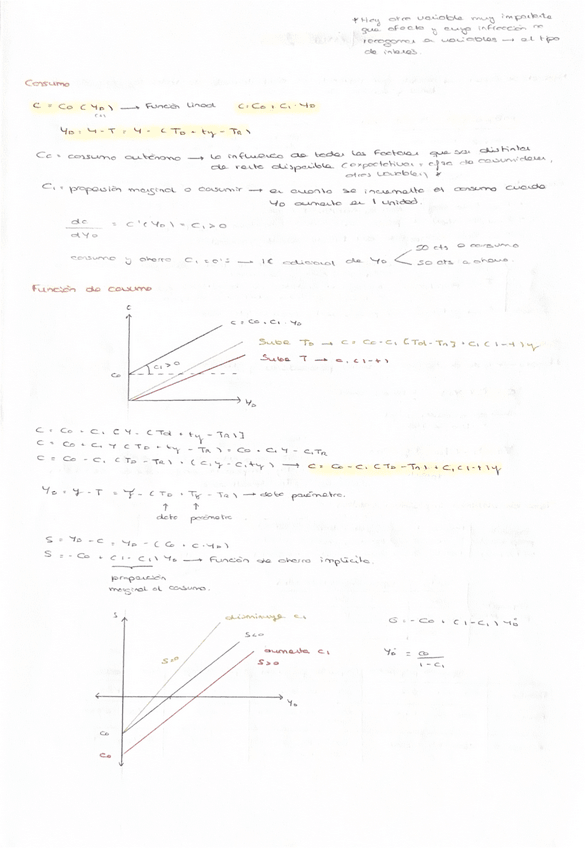 * Hay otra variable muy importante
que afecta y cuya infracción no
recogemos a variables → el tipo
de interés.
Consumo
C = Co (YD) → Función lineal C = Co + C1 · YD
(+)
YD = Y - T = Y - (To + ty - TR)
Co = consumo autónomo → lo influencia de todos los factores que son distintos
de renta disponible (expectativas, cfza de consumidores,
otras variables) *
C1 = propensión marginal a consumir → en cuanto se incrementa el consumo cuando
YD aumenta en 1 unidad.
dc / dYD = C'(YD) = C1 > 0
consumo y ahorro C1 = 0'5 → 1€ adicional de YD
50 cts a consumo
50 cts a ahorro.
Función de consumo
C
C = Co + C1 · YD
Sube To → C = Co - C1 [To - TR] + C1 (1-t) y
Sube T → C1 (1-t)
C1 > 0
Co
YD
C = Co + C1 [Y - (To + ty - TR)]
C = Co + C1 Y (To + ty - TR) = Co + C1 Y - C1 TR
C = Co - C1 (To - TR) + (C1 y - C1 ty) → C = Co - C1 (To - TR) + C1 (1-t) y
YD = y - T = y - (To + Ty - TR) → dato parámetro.
↑ ↑
dato parámetro
S = YD - C = YD - (Co + C · YD)
S = -Co + (1 - C1) YD → Función de ahorro implícita.
propensión
marginal al consumo.
S
disminuye C1
S<0
S=0
aumenta C1
S>0
YD
Co
Co
S = -Co + (1 - C1) YD
YD = Co / 1 - C1